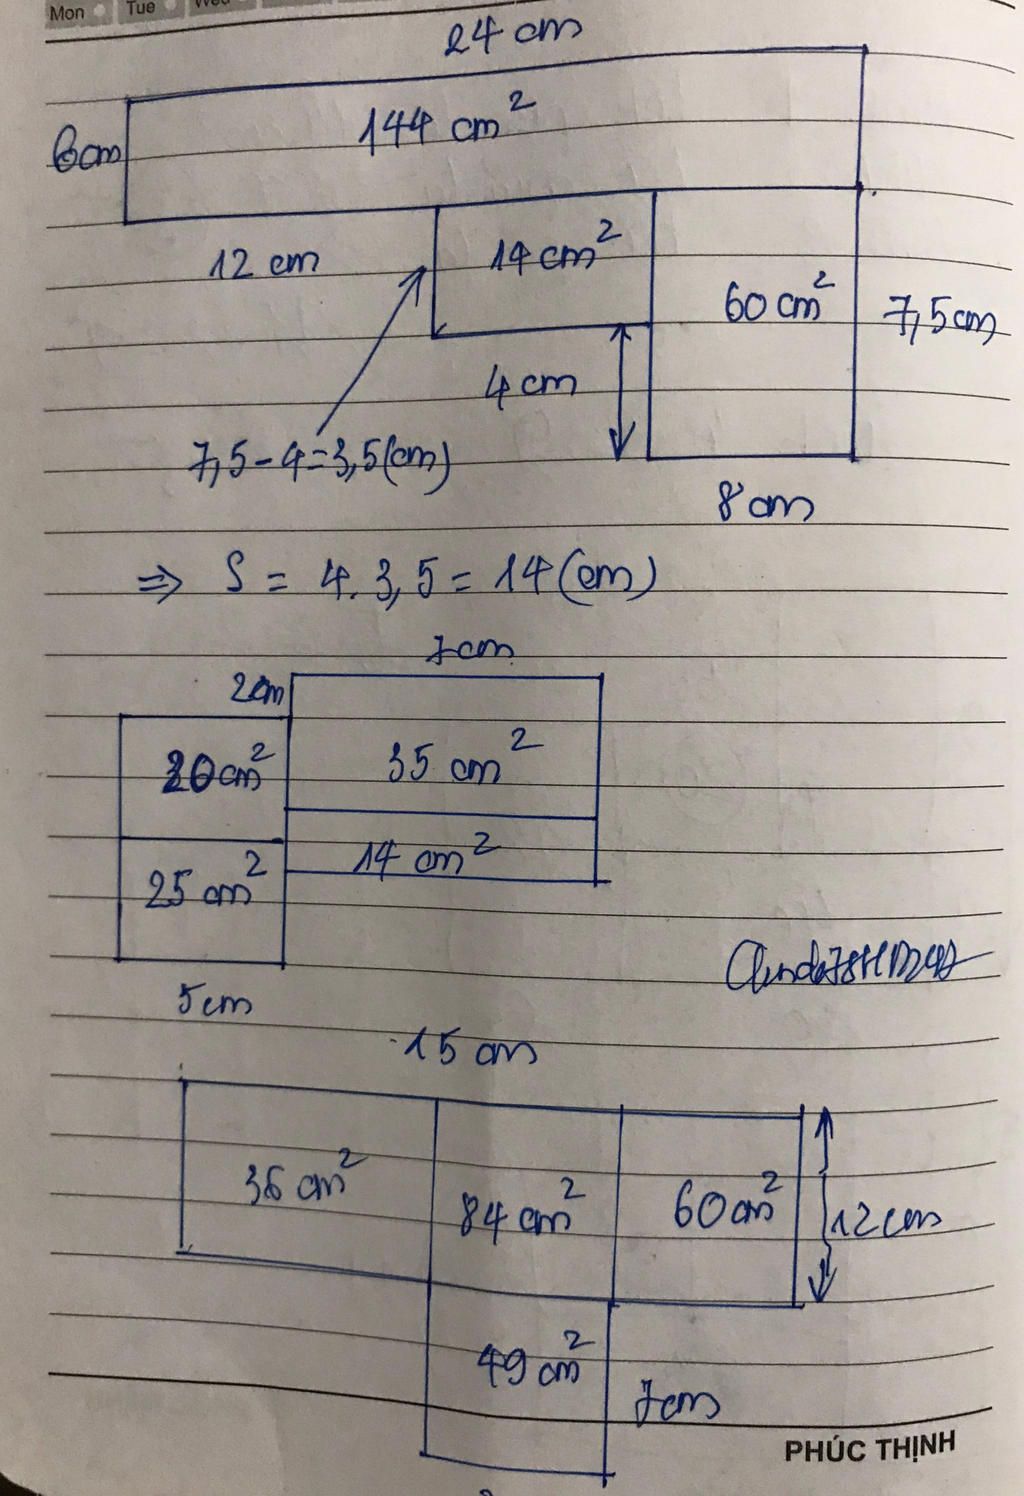 Mon Tue Wed
24 cm
6cm
144 cm²
12 cm
14 cm²
60 cm²
7,5cm
4 cm
7,5-4=3,5(cm)
8 cm
=> S = 4.3,5 = 14 (cm)
7cm
2cm
20cm²
35 cm²
14 cm²
25 cm²
5cm
15 cm
36 cm²
84 cm²
60cm²
12 cm
49 cm²
7cm
PHÚC THỊNH